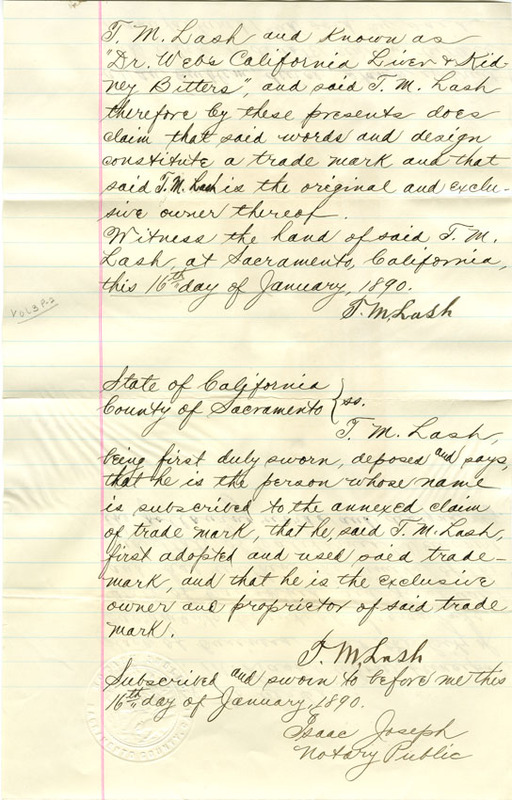 T. M. Lash and known as
"Dr. Webs California Liver & Kid-
ney Bitters", and said T. M. Lash
therefore by these presents does
claim that said words and design
constitute a trade mark and that
said T. M. Lash is the original and exclu-
sive owner thereof.
Witness the hand of said T. M.
Lash, at Sacramento, California,
this 16th day of January, 1890.
T. M. Lash
Vol 3 P-2
State of California
County of Sacramento } ss.
T. M. Lash,
being first duly sworn, deposed and says,
that he is the person whose name
is subscribed to the annexed claim
of trade mark, that he, said T. M. Lash,
first adopted and used said trade-
mark, and that he is the exclusive
owner and proprietor of said trade
mark.
T. M. Lash
Subscribed and sworn to before me this
16th day of January, 1890.
Isaac Joseph
Notary Public